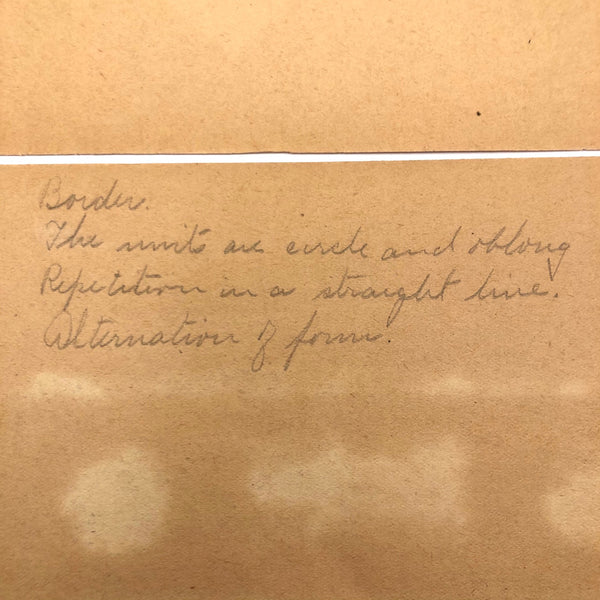 Border.
The units are circle and oblong
Repetition in a straight line.
Alternation of form.